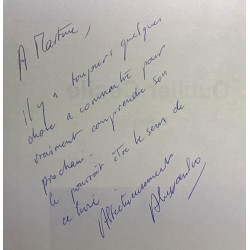 A Martine,
il y a toujours quelque
chose a connaitre pour
vraiment comprendre son
prochain.
le pourrait être le sens de
ce livre
Affectueusement
Alessandro